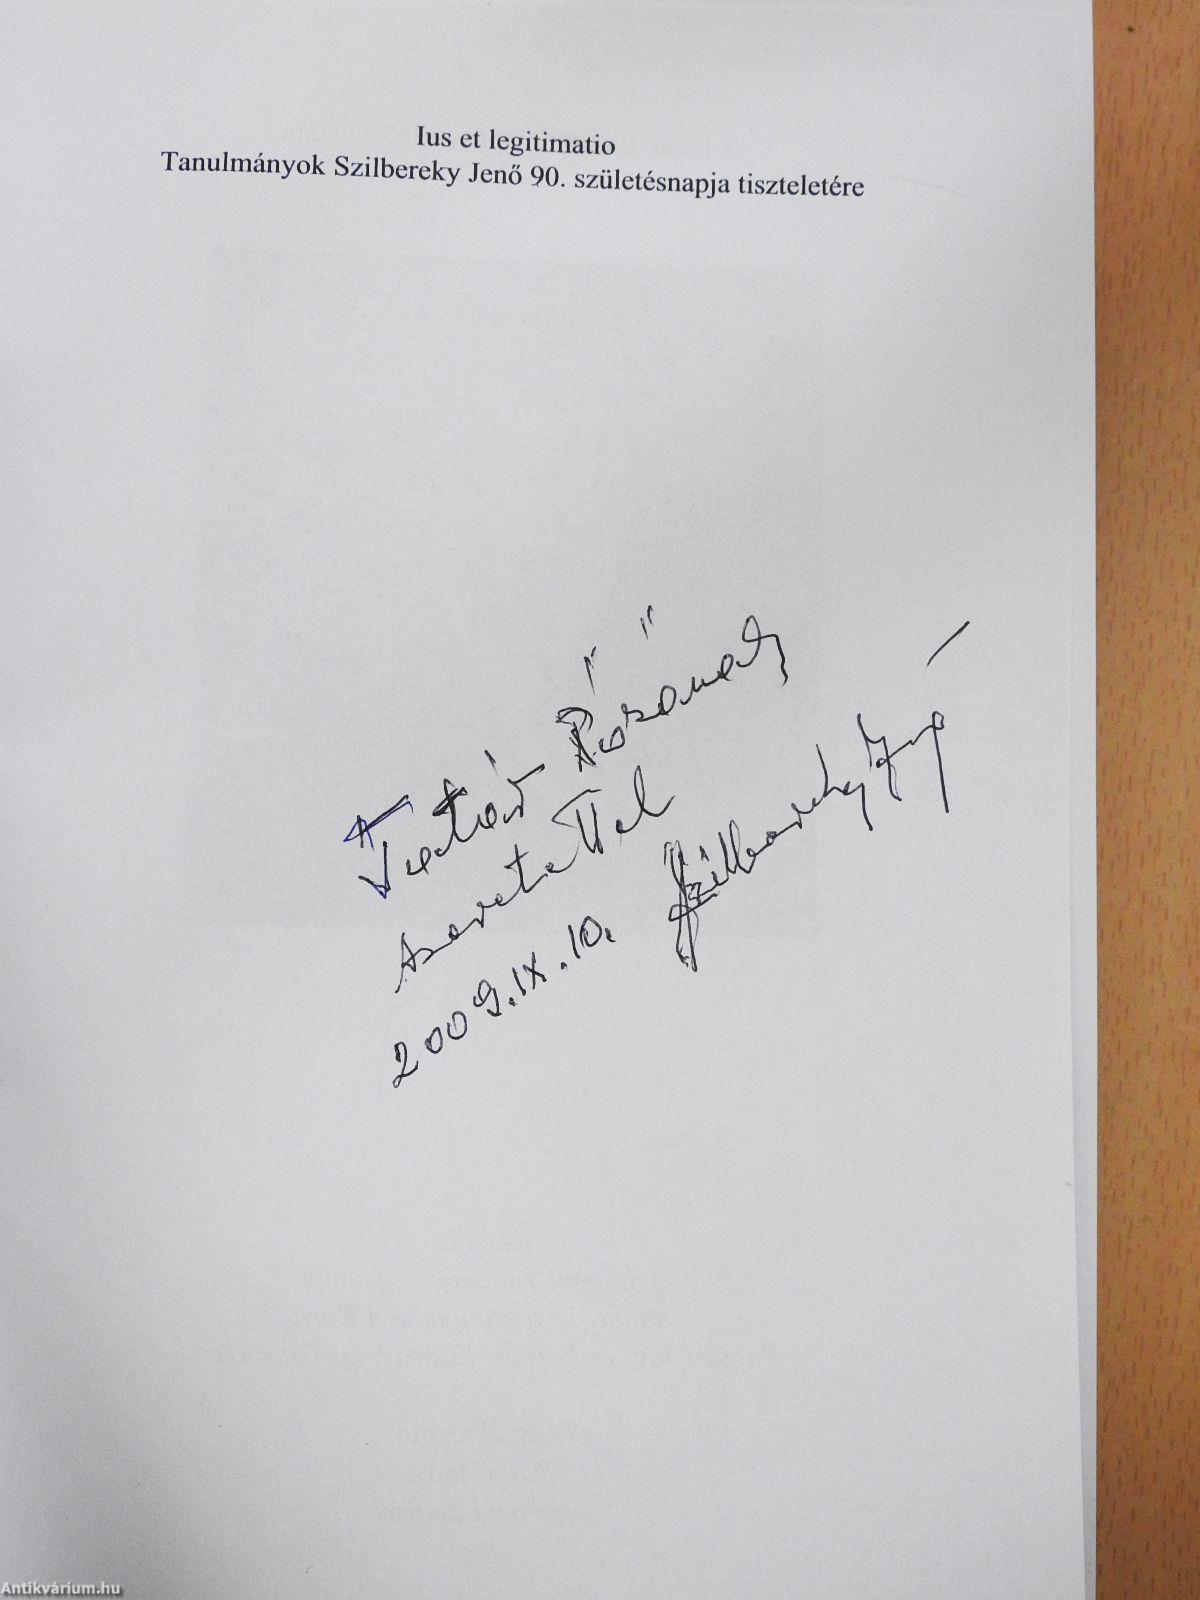 Ius et legitimatio
Tanulmányok Szilbereky Jenő 90. születésnapja tiszteletére
szeretettel
2009.IX.10. Szilbereky Jenő
Antikvárium.hu